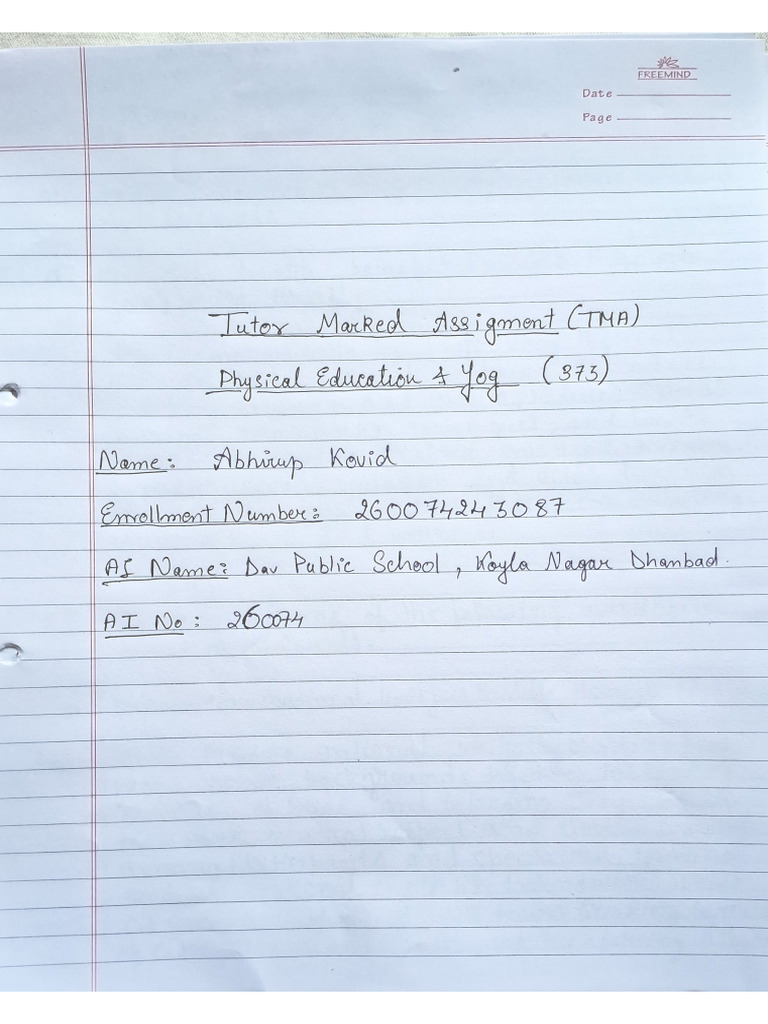 FREEMIND
Date
Page
Tutor Marked Assigment (TMA)
Physical Education & Yog (373)
Name: Abhirup Kovid
Enrollment Number: 260074243087
AI Name: Dav Public School, Koyla Nagar Dhanbad.
AI No: 260074